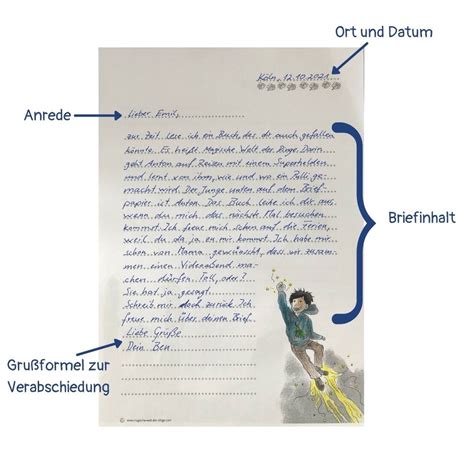 Ort und Datum
Köln, 12.10.2021
Anrede
Lieber Emil,
zur Zeit lese ich ein Buch, das dir auch gefallen
könnte. Es heißt Magische Welt der Dinge. Darin
geht Anton auf Reisen mit einem Superhelden
und lernt von ihm, wie und wo ein Pulli ge-
macht wird. Der Junge unten auf dem Brief-
papier ist Anton. Das Buch leihe ich dir aus,
wenn du mich das nächste Mal besuchen
kommst. Ich freue mich schon auf die Ferien,
weil du da ja zu mir kommst. Ich habe mir
schon von Mama gewünscht, dass wir zusam-
men einen Videoabend ma-
chen dürfen. Toll, oder?
Sie hat ja gesagt.
Schreib mir doch zurück. Ich
freue mich über deinen Brief.
Liebe Grüße
Dein Ben
Briefinhalt
Grußformel zur
Verabschiedung
www.magische-welt-der-dinge.com